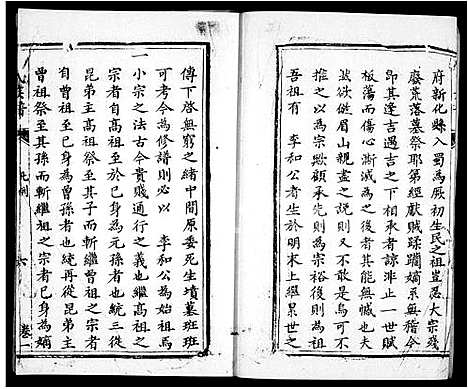 府新化縣入蜀為厥初生民之祖豈忍大宗殘
廢荒落墓祭耶第經獻賊蹂躪嫡系無稽今
即其逢吉遇吉之下相承者諒非止一世賊
板蕩而傷心澌滅為之後者其能無動念哉
茲欲継眉山親盡之說則又不敢是烏可不
推之以為宗歟顧承為宗裕後則為祖
吾祖有　李和公者生於明末上纘累世之
傳下啓無窮之緒中間原委死生墳墓班班
可考今為修譜則必以　李和公為始祖焉
一
小宗之法古今貴賤通行之義也繼高祖之
宗者自高祖至於已身為元孫者也統三從
昆弟主高祖祭至其子而斬繼曾祖之宗者
自曾祖至已身為曾孫者也統再從昆弟主
曾祖祭至其孫而斬繼祖之宗者已身為嫡
凡例
六
卷一